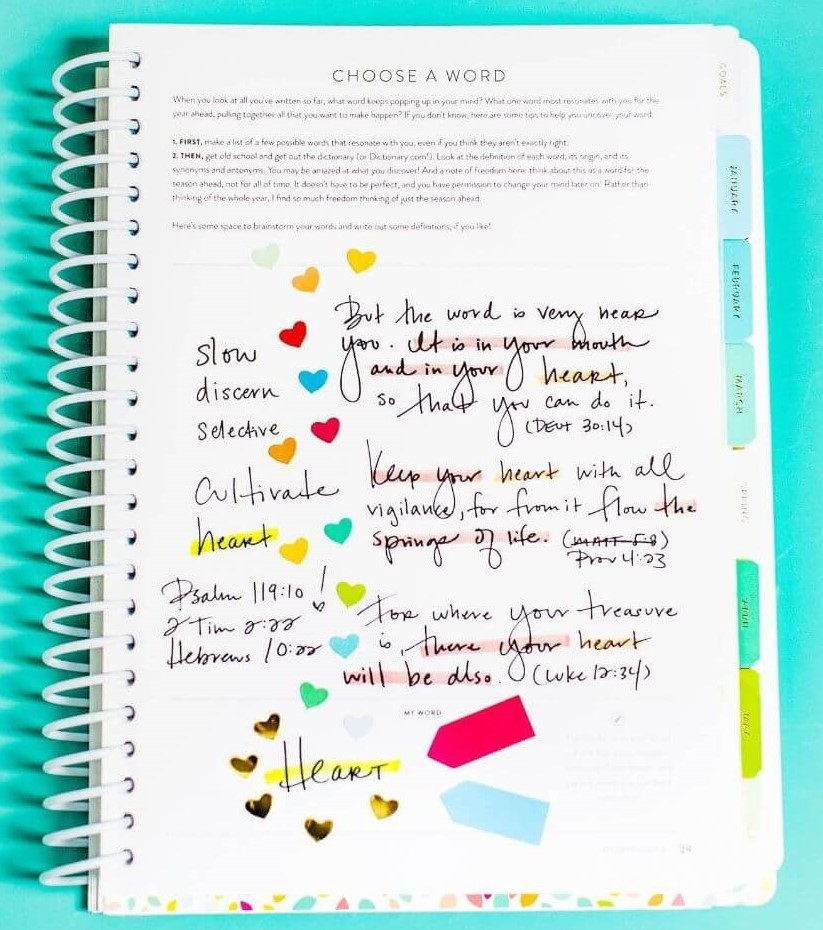 CHOOSE A WORD
When you look at all you've written so far, what word keeps popping up in your mind? What one word most resonates with you for the
year ahead, pulling together all that you want to make happen? If you don't know, here are some tips to help you uncover your word.
1. FIRST, make a list of a few possible words that resonate with you, even if you think they aren't exactly right.
2. THEN, get old school and get out the dictionary (or Dictionary.com!). Look at the definition of each word, its origin, and its
synonyms and antonyms. You may be amazed at what you discover! And a note of freedom here: think about this as a word for the
season ahead, not for all of time. It doesn't have to be perfect, and you have permission to change your mind later on! Rather than
thinking of the whole year, I find so much freedom thinking of just the season ahead.
Here's some space to brainstorm your words and write out some definitions, if you like!
slow
discern
selective
Cultivate
heart
Psalm 119:10 !
2 Tim 2:22
Hebrews 10:22
But the word is very near
you. It is in your mouth
and in your heart,
so that you can do it.
(Deut 30:14)
Keep your heart with all
vigilance, for from it flow the
springs of life. (Matt 5:8)
Prov 4:23
For where your treasure
is, there your heart
will be also. (Luke 12:34)
MY WORD
Heart
GOALS
JANUARY
FEBRUARY
MARCH
SPRING
APRIL
MAY